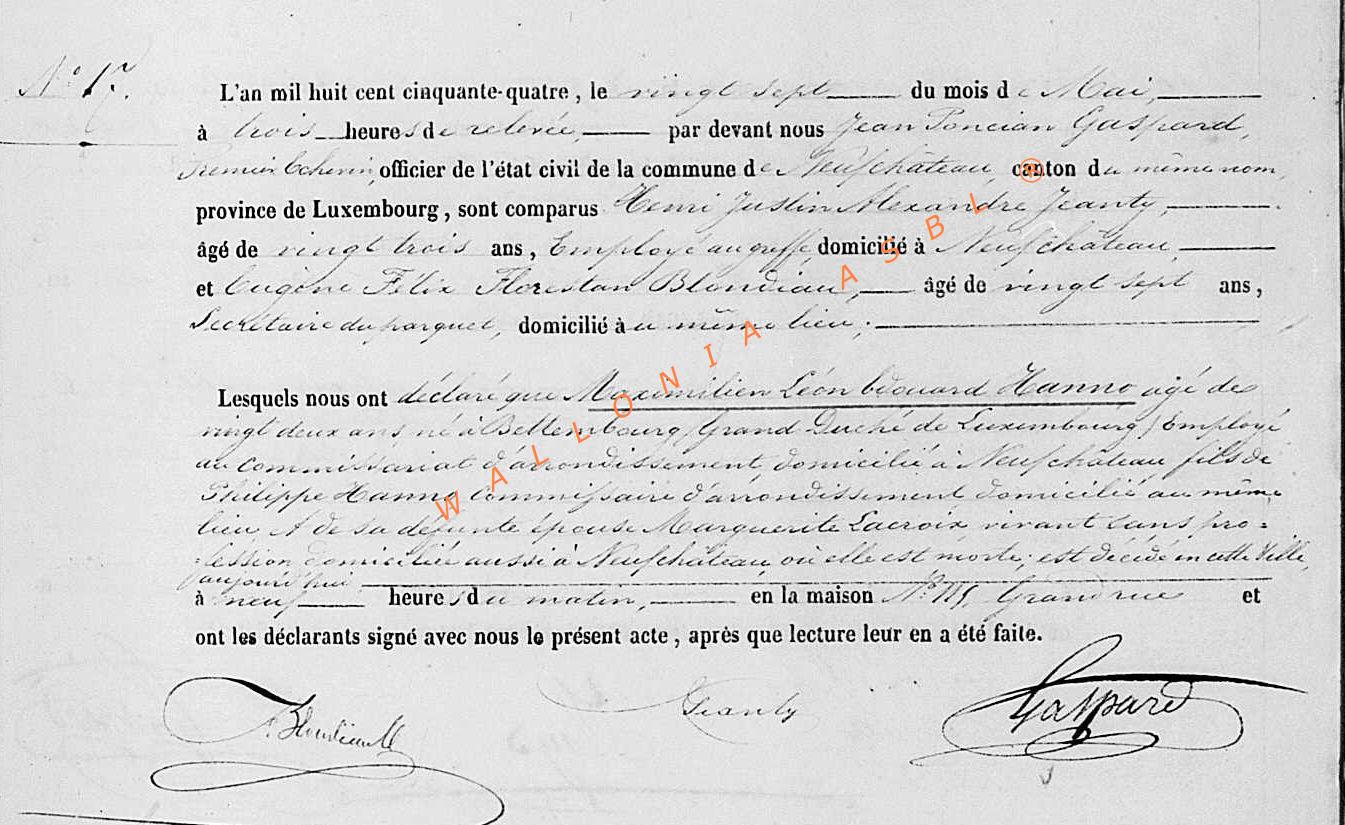 N° 17.
L'an mil huit cent cinquante-quatre, le vingt sept du mois de Mai,
à trois heures de relevée, par devant nous Jean Poncian Gaspard,
Premier Echevin, officier de l'état civil de la commune de Neufchâteau, canton du même nom,
province de Luxembourg, sont comparus Henri Justin Alexandre Jeanty,
âgé de vingt trois ans, Employé au greffe, domicilié à Neufchâteau,
et Eugène Félix Florestan Blondiau, âgé de vingt sept ans,
Secrétaire du parquet, domicilié au même lieu;
Lesquels nous ont déclaré que Maximilien Léon Edouard Hanno agé de
vingt deux ans, né à Bettembourg (Grand Duché de Luxembourg) Employé
au Commissariat d'arrondissement domicilié à Neufchâteau fils de
Philippe Hanno Commissaire d'arrondissement domicilié au même
lieu, & de sa defunte épouse Marguerite Lacroix vivant sans pro=
=fession domiciliée aussi à Neufchâteau où elle est morte; est décédé en cette Ville,
aujourd'hui
à neuf heures du matin, en la maison N° 115, Grand rue et
ont les déclarants signé avec nous le présent acte, après que lecture leur en a été faite.
F. Blondiau Jeanty Gaspard
WALLONIA ASBL ®